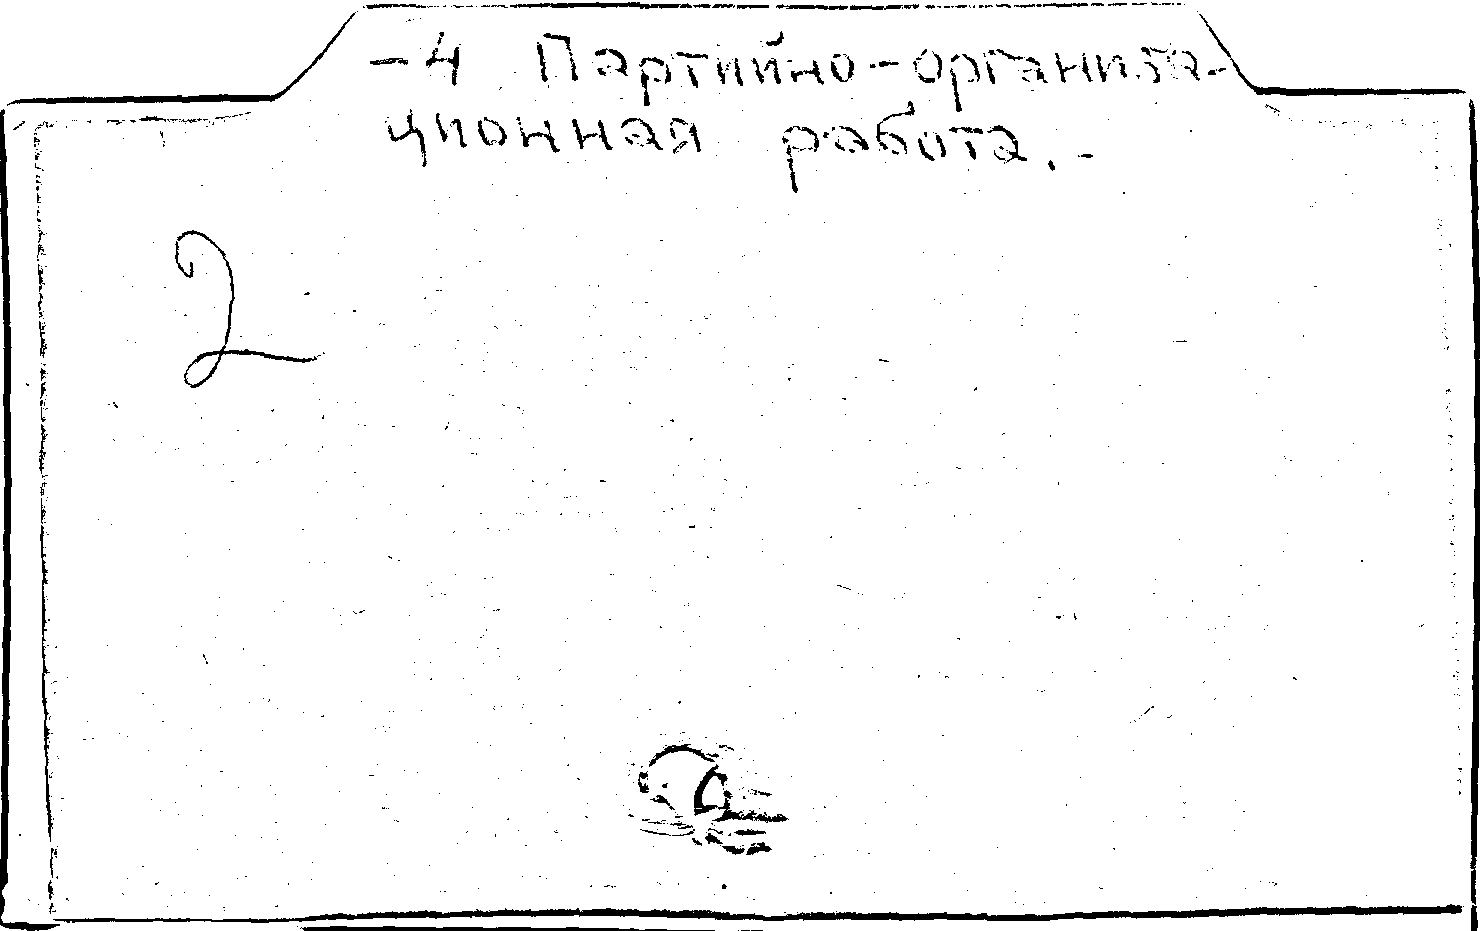 -4 Партийно-организа-
ционная работа.-
2